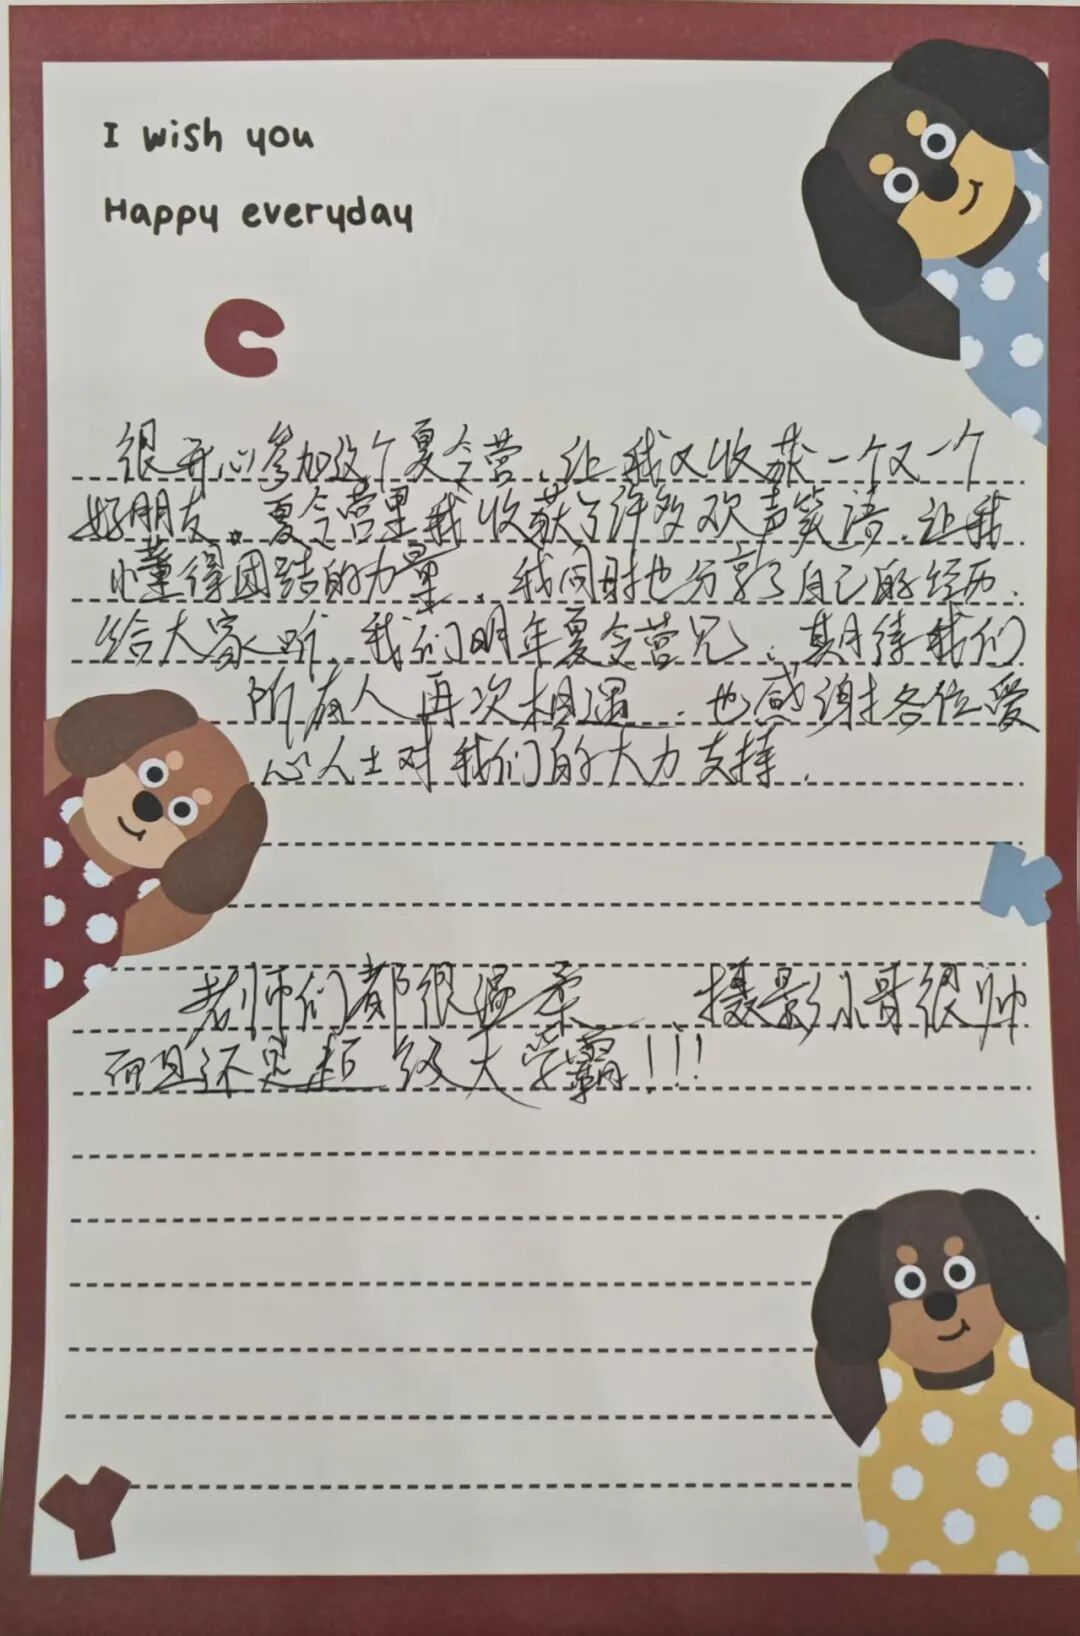 I wish you
Happy everyday
C
很开心参加这个夏令营,让我又收获一个又一个
好朋友。夏令营里我收获了许多欢声笑语,让我
懂得团结的力量,我同时也分享了自己的经历,
给大家听,我们明年夏令营见,期待我们
所有人再次相遇,也感谢各位爱
心人士对我们的大力支持.
K
老师们都很温柔 摄影小哥很帅
而且还是超级大学霸!!!
Y